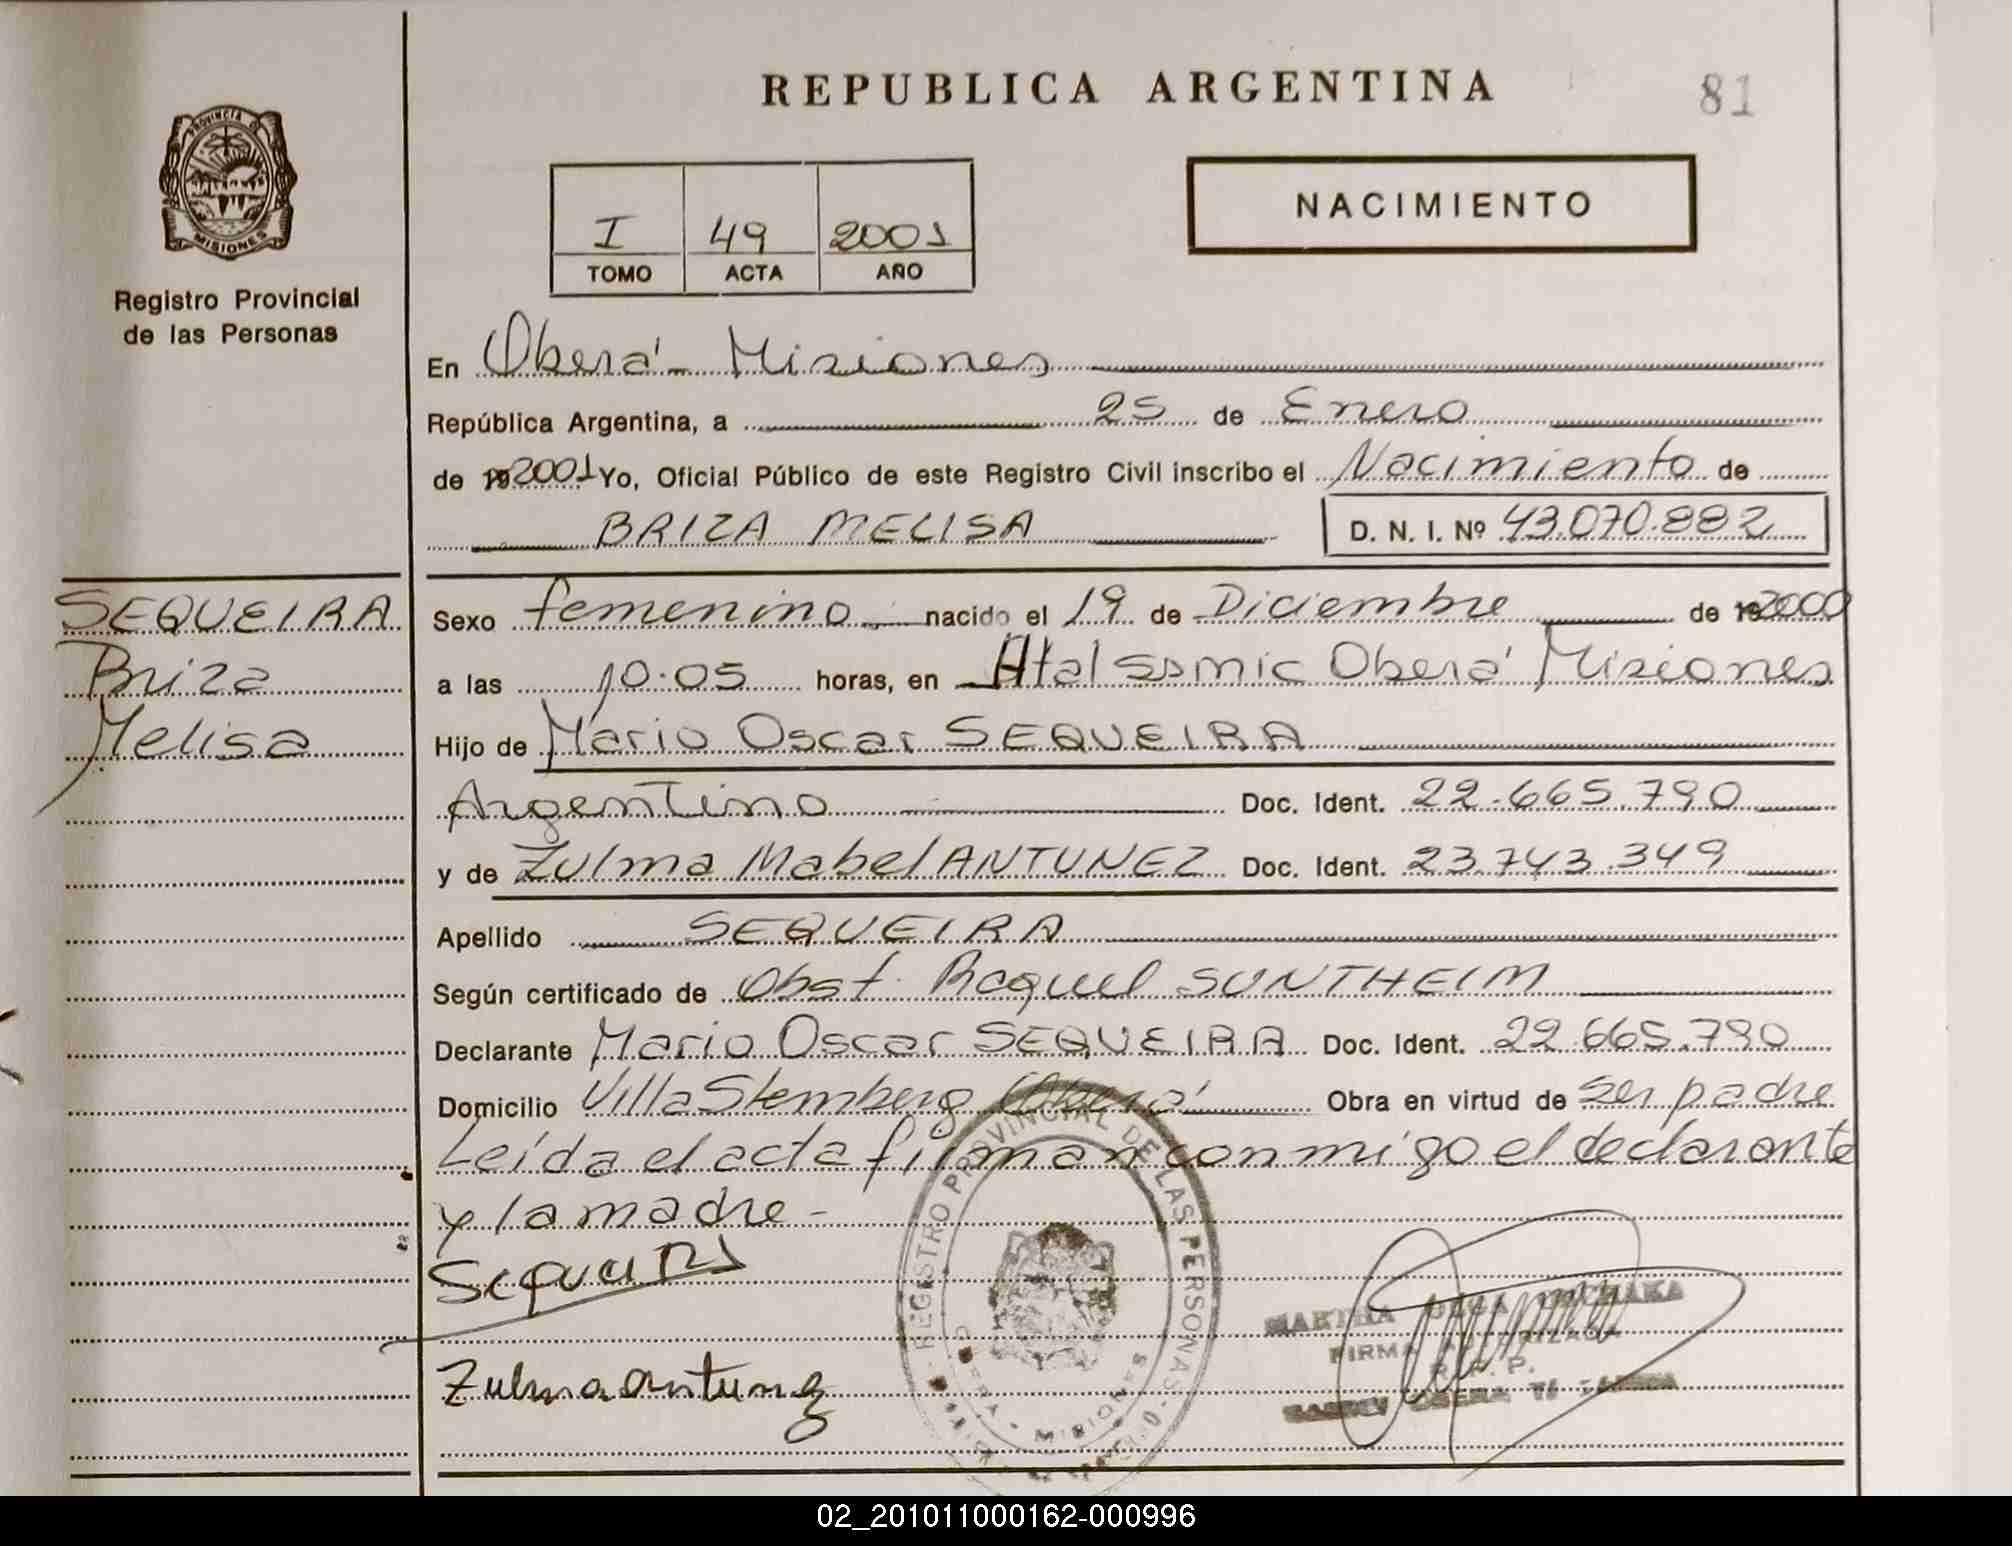 REPUBLICA ARGENTINA
81
PROVINCIA DE
MISIONES
Registro Provincial
de las Personas
I 49 2001
TOMO ACTA AÑO
NACIMIENTO
En Oberá - Misiones
República Argentina, a 25 de Enero
de 19 2001 Yo, Oficial Público de este Registro Civil inscribo el Nacimiento de
BRIZA MELISA D. N. I. Nº 43.070.882
SEQUEIRA
Briza
Melisa
Sexo femenino nacido el 19 de Diciembre de 19 2000
a las 10:05 horas, en Htal SSMIC Oberá Misiones
Hijo de Mario Oscar SEQUEIRA
Argentino Doc. Ident. 22.665.790
y de Zulma Mabel ANTUNEZ Doc. Ident. 23.743.349
Apellido SEQUEIRA
Según certificado de Obst. Raquel SUNTHEIM
Declarante Mario Oscar SEQUEIRA Doc. Ident. 22.665.790
Domicilio Villa Stemberg Oberá Obra en virtud de ser padre
Leída el acta firman conmigo el declarante
y la madre -
Sequeira
Zulma antunez
REGISTRO PROVINCIAL DE LAS PERSONAS
MISIONES
MARTHA
FIRMA
R. P. P.
OBERA
02_201011000162-000996